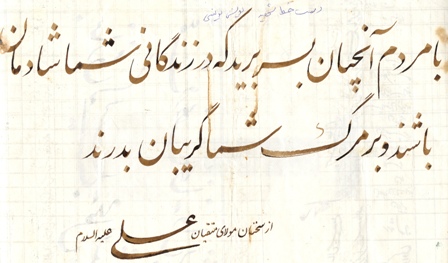 با مردم آنچنان بسر برید که در زندگانی شما شادمان
باشند و بر مرگ شما گریبان بدرند
از سخنان مولای متقیان علی علیه السلام